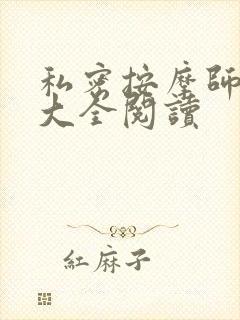 私密按摩師
大全閱讀
紅麻子